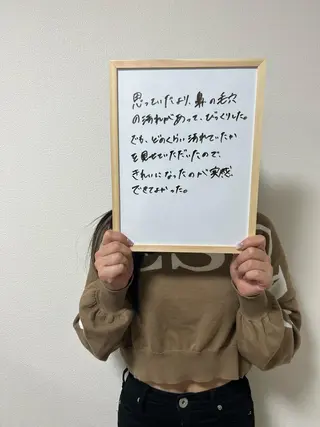 思っていたより、鼻の毛穴
の汚れがあって、びっくりした。
でも、どのくらい汚れていたか
を見せていただいたので、
きれいになったのが実感
できてよかった。